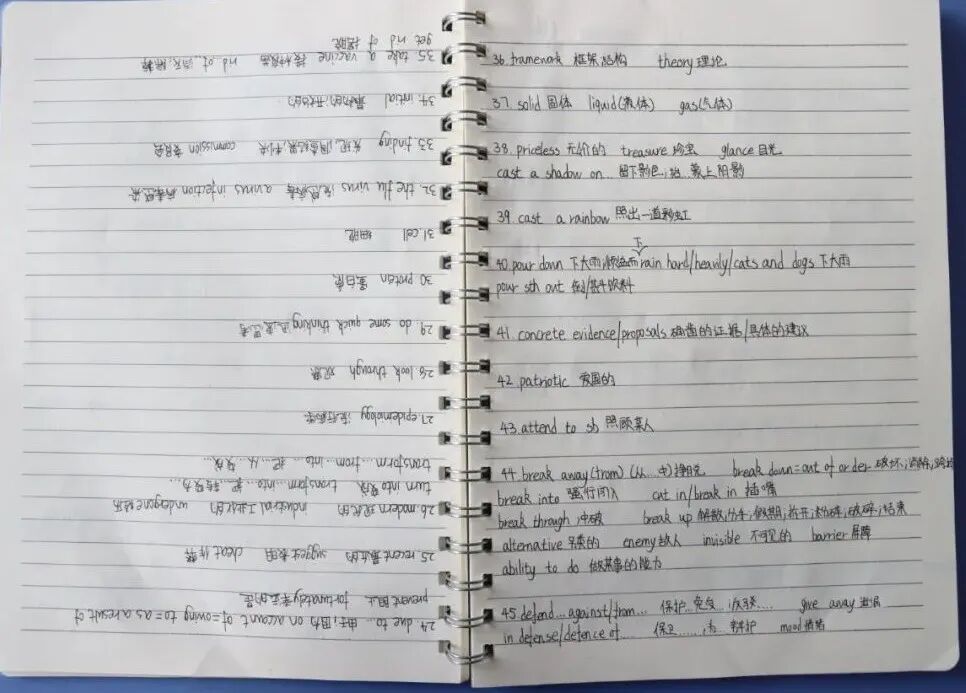 24. due to ... 由于; 因为 on account of = owing to = as a result of
prevent 阻止 fortunately 幸运的是
25. recent 最近的 suggest 表明 cheat 作弊
26. modern 现代的 industrial 工业化的 undergone 经历
turn into 变成 transform...into... 把...转变为...
transform...from...into... 把...从...变成...
27. epidemiology 流行病学
28. look through 观察
29. do some quick thinking 迅速思考
30. protein 蛋白质
31. cell 细胞
32. the flu virus 流感病毒 a virus infection 病毒感染
33. finding 发现, 调查结果, 判决 commission 委员会
34. initial 最初的; 开始的
35. take a vaccine 接种疫苗 rid of
get rid of 摆脱
36. framework 框架结构 theory 理论
37. solid 固体 liquid (液体) gas (气体)
38. priceless 无价的 treasure 珍宝 glance 目光
cast a shadow on... 留下影色; 给...蒙上阴影
39. cast a rainbow 照出一道彩虹
40. pour down 下大雨; 下倾盆雨 rain hard/heavily/cats and dogs 下大雨
pour sth out 倒/饮料
41. concrete evidence/proposals 确凿的证据/具体的建议
42. patriotic 爱国的
43. attend to sb 照顾某人
44. break away (from) (从...中) 挣脱 break down = out of order 破坏; 消除;
break into 强行闯入 cut in/break in 插嘴
break through 冲破 break up 解散; 分手; 放假; 拆开; 粉碎; 破碎; 结束
alternative 另类的 enemy 敌人 invisible 不可见的 barrier 屏障
ability to do 做某事的能力
45. defend...against/from... 保护...免受 give away 泄漏
in defense/defence of... 保卫......, 为...辩护 mood 情绪